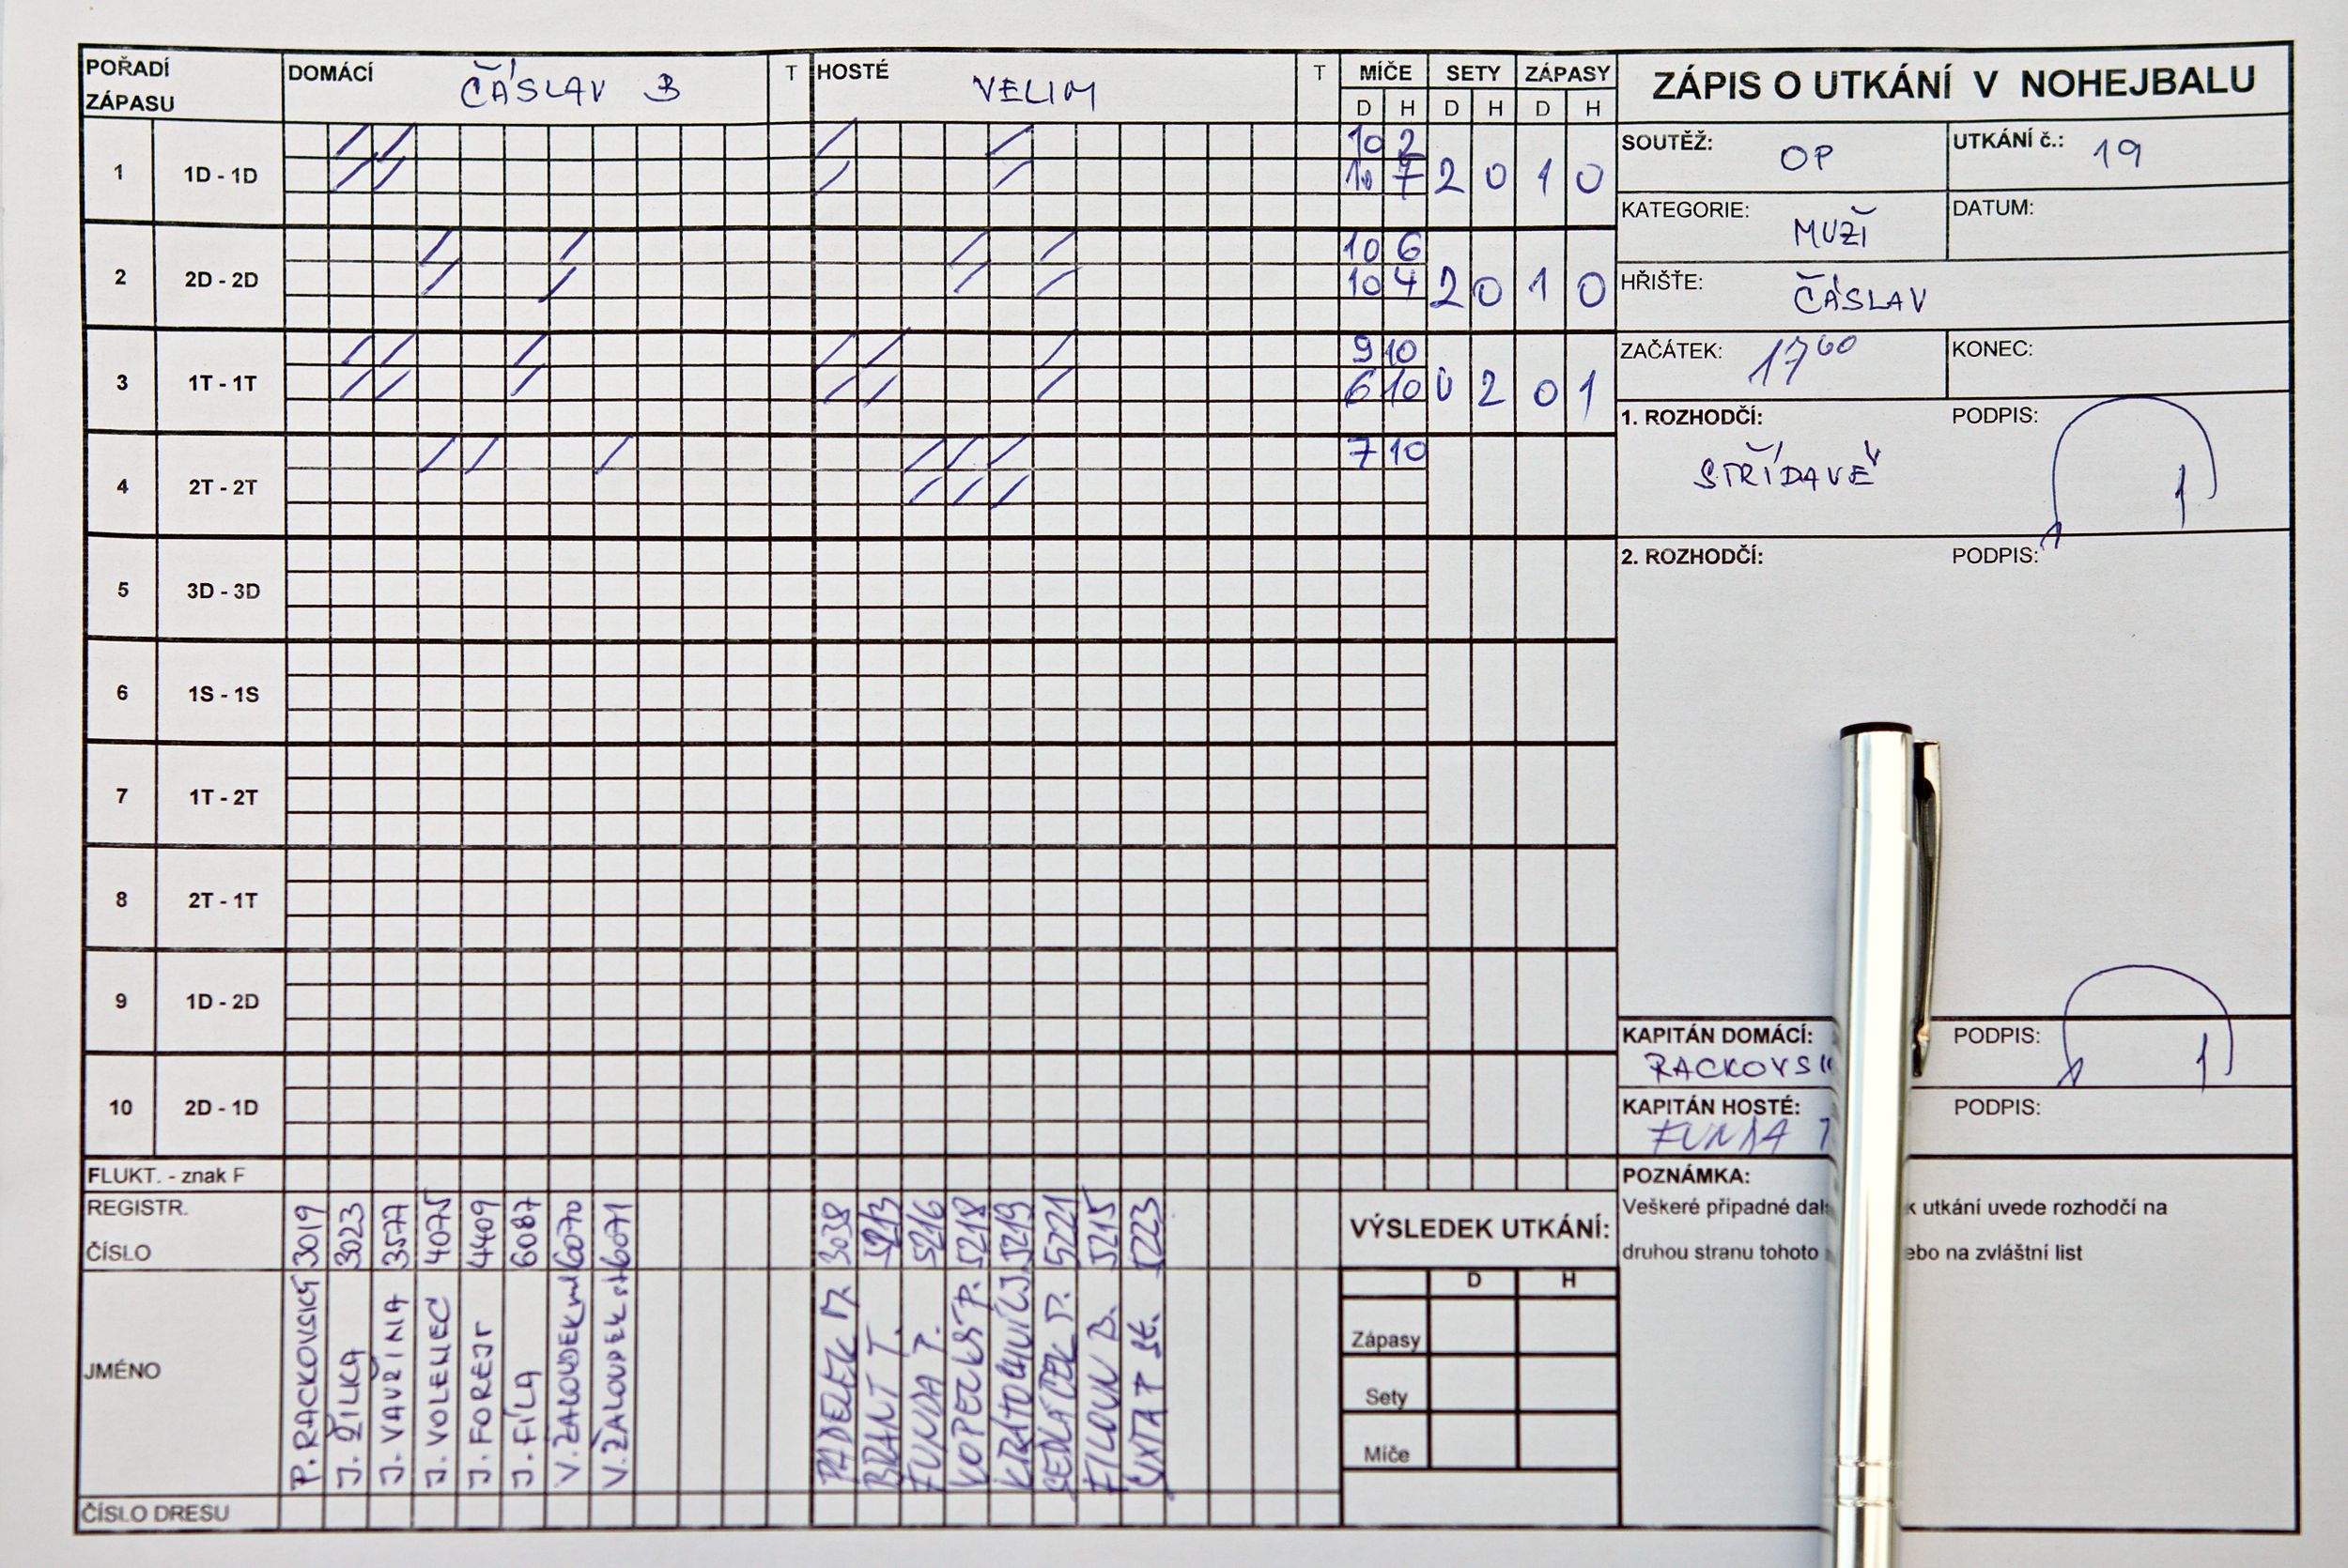 POŘADÍ ZÁPASU DOMÁCÍ ČÁSLAV B T HOSTÉ VELIM T MÍČE SETY ZÁPASY
D H D H D H
ZÁPIS O UTKÁNÍ V NOHEJBALU
1 1D - 1D 10 2
10 7 2 0 1 0
2 2D - 2D 10 6
10 4 2 0 1 0
3 1T - 1T 9 10
6 10 0 2 0 1
4 2T - 2T 7 10
5 3D - 3D
6 1S - 1S
7 1T - 2T
8 2T - 1T
9 1D - 2D
10 2D - 1D
SOUTĚŽ: OP UTKÁNÍ č.: 19
KATEGORIE: MUŽI DATUM:
HŘIŠTĚ: ČÁSLAV
ZAČÁTEK: 17 00 KONEC:
1. ROZHODČÍ: PODPIS:
STŘÍDAVĚ
2. ROZHODČÍ: PODPIS:
KAPITÁN DOMÁCÍ: PODPIS:
RACKOVS
KAPITÁN HOSTÉ: PODPIS:
FUNDA T
POZNÁMKA:
Veškeré případné dal k utkání uvede rozhodčí na
druhou stranu tohoto ebo na zvláštní list
FLUKT. - znak F
REGISTR.
ČÍSLO
JMÉNO
P. RACKOVSKÝ 3019
J. ŽILKA 3023
J. VAVŘINA 3577
J. VOLENEC 4075
J. FOREJT 4409
J. FÍLA 6087
V. ŽALOUDEK ml 6070
V. ŽALOUDEK st 6071
3038
BRANT T. 5213
FUNDA T. 5216
KOPECKÝ P. 5218
KRATOCHVÍL J. 5219
SEDLÁČEK P. 5221
FILOUN B. 5215
ŠIXTA T st. 5223
ČÍSLO DRESU
VÝSLEDEK UTKÁNÍ:
D H
Zápasy
Sety
Míče